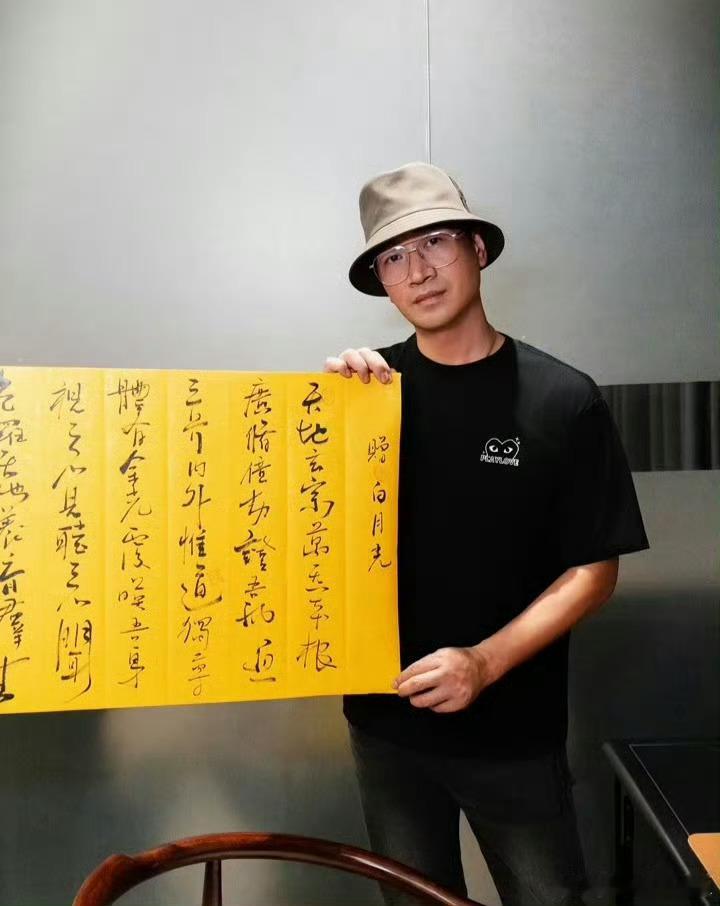 贈白月光
天地玄宗萬炁本根
廣脩億劫證吾神通
三界内外惟道獨尊
體有金光覆映吾身
視之不見聽之不聞
包羅天地養育群生
PLAYLOVE